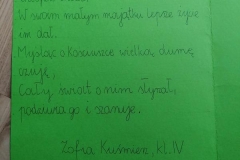 W swoim małym majątku lepsze życie
im dał.
Myśląc o Kościuszce wielką dumę
czuję,
Cały świat o nim słyszał,
podziwia go i szanuje.
Zofia Kuśmierz, kl. IV